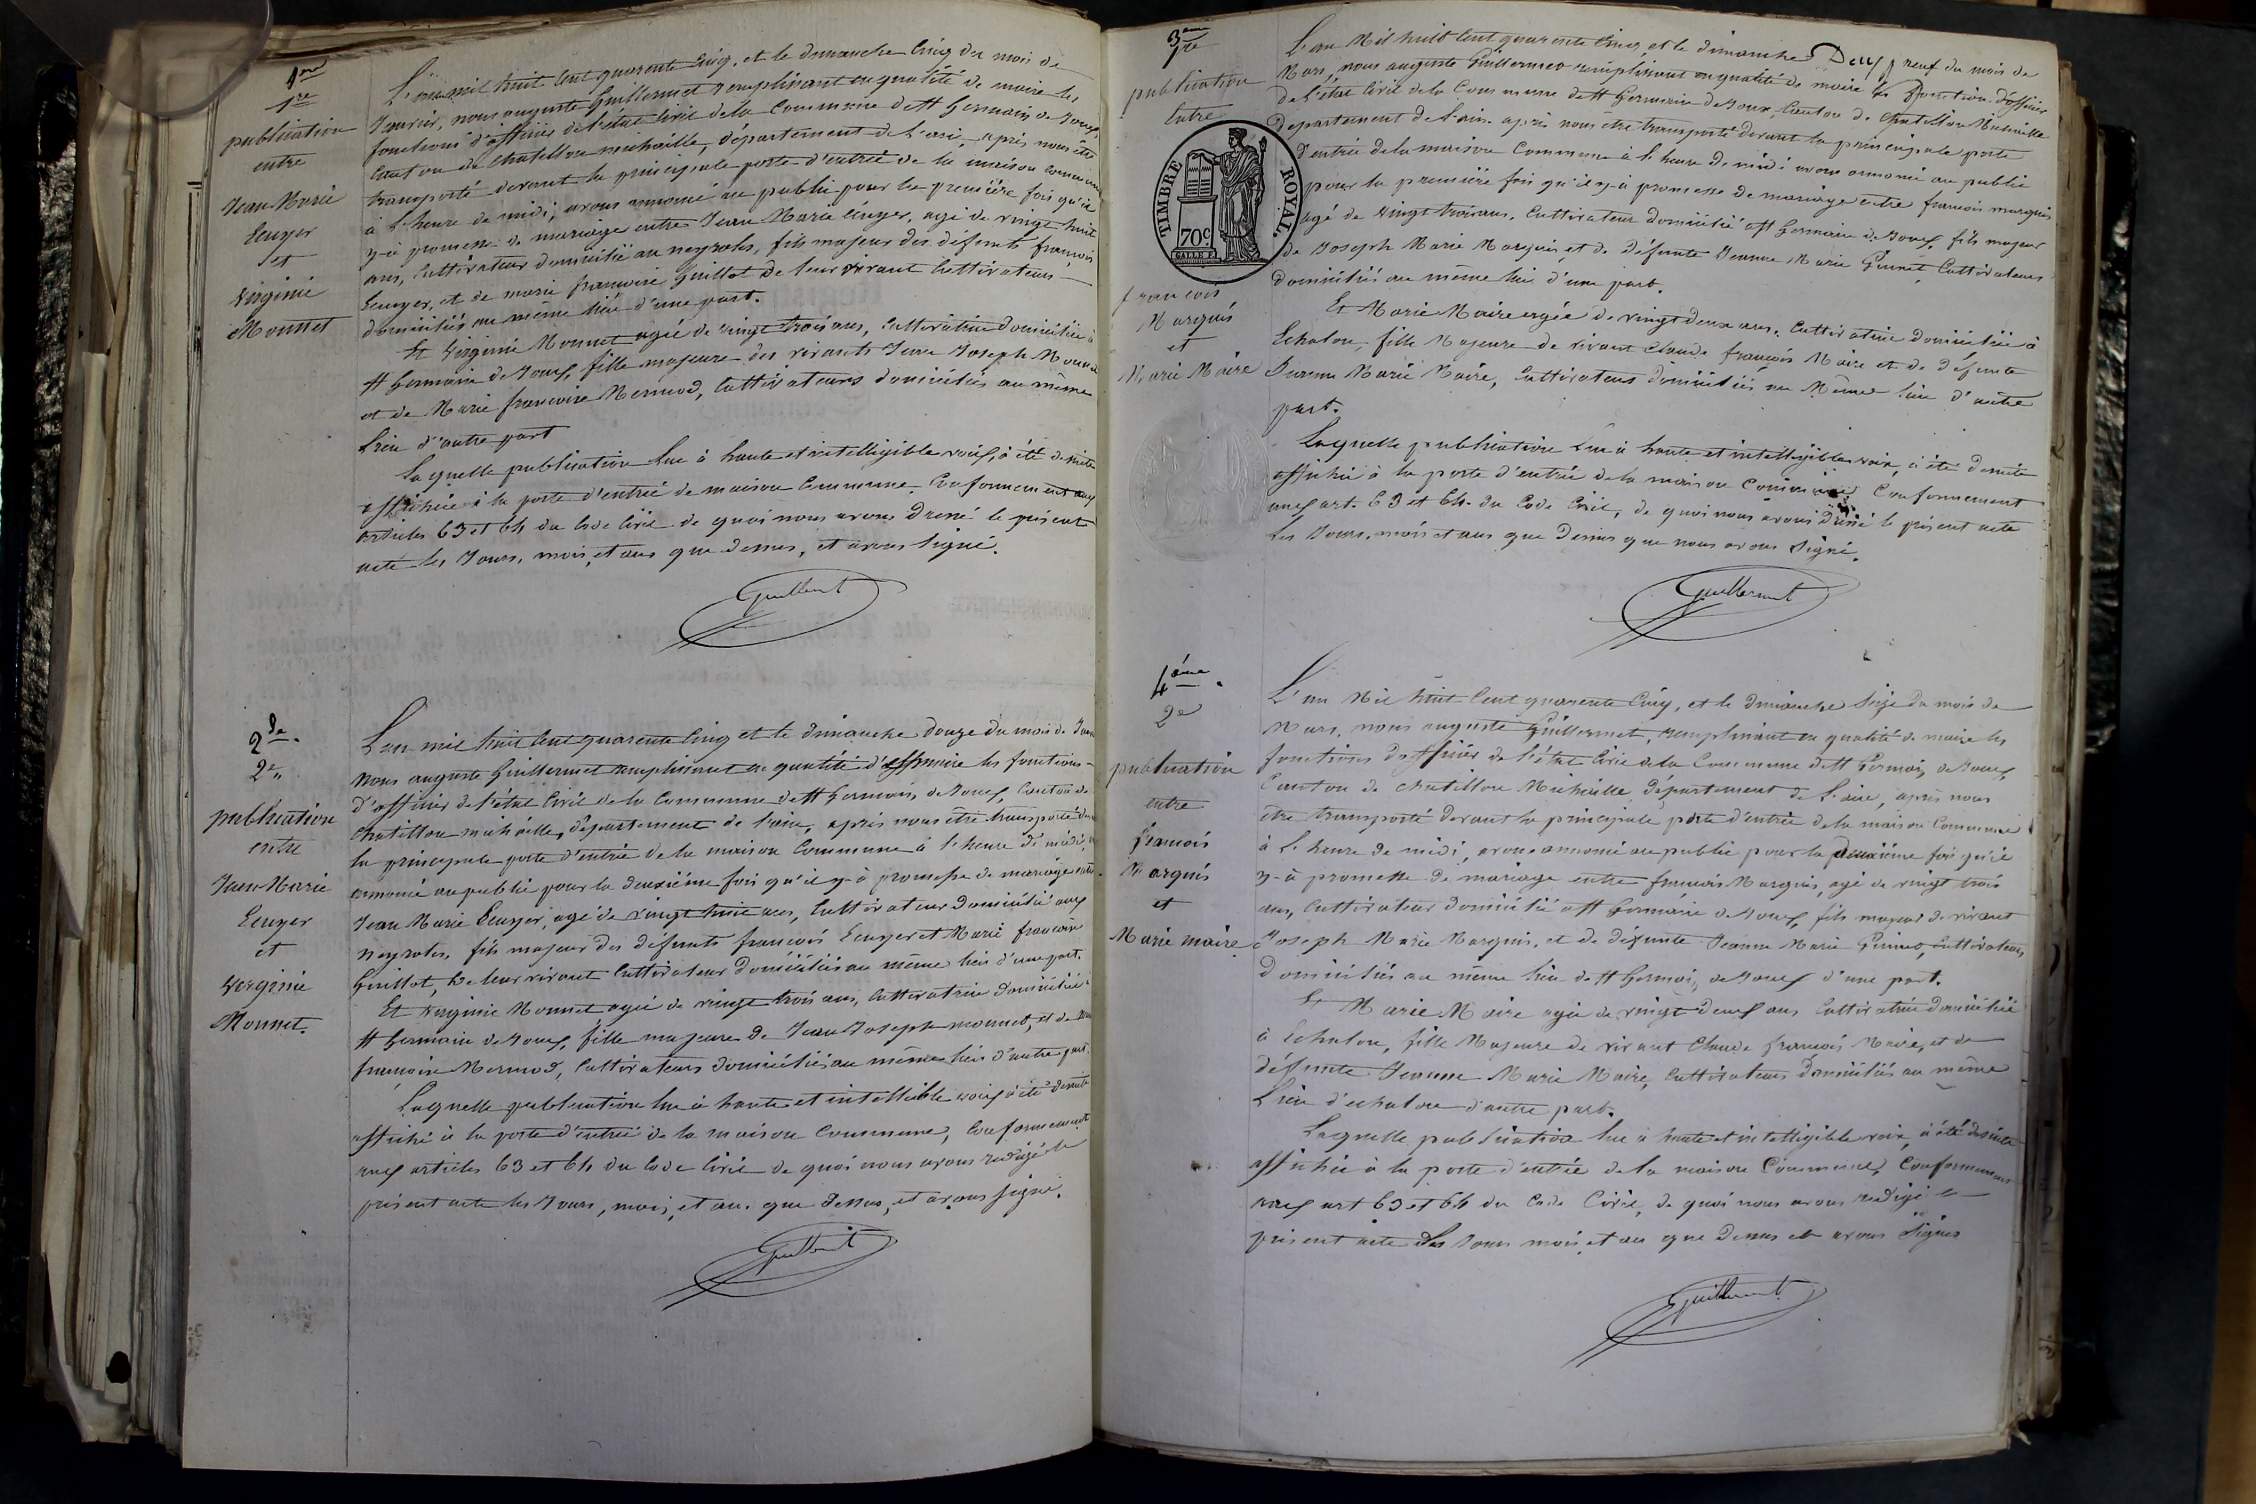 1re
1re
publication
entre
Jean Marie
Ecuyer
et
Virginie
Monnet
L'an mil huit cent quarante cinq, et le dimanche cinq du mois de
Janvier, nous auguste Guillermet remplissant en qualité de maire les
fonctions d'officier de l'état civil de la commune de St Germain de Joux,
canton de Chatillon michaille, département de l'ain, après nous être
transporté devant la principale porte d'entrée de la maison commune
à l'heure de midi, avons annoncé au public pour la première fois qu'il
y-à promesse de mariage entre Jean Marie Ecuyer, agé de vingt huit
ans, cultivateur domicilié au neyroles, fils majeur des défunts françois
Ecuyer, et de marie françoise Guillot de leur vivant cultivateurs
domiciliés au même lieu d'une part.
Et Virginie Monnet agée de vingt trois ans, cultivatrice domiciliée à
St Germain de Joux, fille majeure des vivants Jean Joseph Monnet
et de Marie françoise Mermod, cultivateurs domiciliés au même
lieu d'autre part
Laquelle publication lue à haute et intelligible voix, à été de suite
affichée à la porte d'entrée de maison commune. Conformement aux
articles 63 et 64 du Code Civil de quoi nous avons dressé le présent
acte les Jours, mois, et ans que dessus, et avons signé.
Guillermet
2de.
2e
publication
entre
Jean Marie
Ecuyer
et
Virginie
Monnet.
L'an mil huit cent quarante cinq et le dimanche douze du mois de Janv
nous auguste Guillermet remplissant en qualité de maire les fonctions
d'officier de l'état Civil de la Commune de St Germain de Joux, Canton de
Chatillon michaille, département de l'ain, après nous être transporté dev
la principale porte d'entrée de la maison Commune à l'heure de midi,
annoncé au public pour la deuxième fois qu'il y-à promesse de mariage entre
Jean Marie Ecuyer, agé de vingt huit ans, Cultivateur domicilié aux
neyroles, fils majeur des défunts françois Ecuyer et Marie françoise
Guillot, de leur vivant Cultivateur domiciliés au même lieu d'une part.
Et Virginie Monnet agée de vingt trois ans, Cultivatrice domiciliée à
St Germain de Joux, fille majeure de Jean Joseph monnet, et de
françoise Mermod, Cultivateurs domiciliés au même lieu d'autre part.
Laquelle publication lue à haute et intellible voix à été de suite
affiché à la porte d'entrée de la maison Commune, Conformement
aux articles 63 et 64 du Code Civil de quoi nous avons redigé le
présent acte les Jours, mois, et an. que dessus, et avons signé.
Guillermet
3eme
1re
publication
Entre
TIMBRE ROYAL.
70c
françois
Marquis
et
Marie Maire
L'an Mil huit Cent quarante Cinq, et le dimanche neuf du mois de
Mars, nous auguste Guillermet remplissant en qualité de maire les fonction d'officier
de l'état Civil de la Commune de St Germain de Joux, Canton de Chatillon Michaille
département de l'ain. après nous être transporté devant la principale porte
d'entrée de la maison Commune à l'heure de midi avons annoncé au public
pour la première fois qu'il y-à promesse de mariage entre françois marquis
agé de vingt trois ans, Cultivateur domicilié à St Germain de Joux, fils majeur
de Joseph Marie Marquis, et de défunte Jeanne Marie Cultivateurs
domiciliés au même lieu d'une part.
Et Marie Maire agée de vingt deux ans, Cultivatrice domiciliée à
Echalon, fille Majeure de vivant Claude françois Maire et de défunte
Jeanne Marie Maire, Cultivateurs domiciliés au Même lieu d'autre
part.
Laquelle publication Lue à haute et intelligible voix, à été de suite
affiché à la porte d'entrée de la maison Commune Conformement
aux art. 63 et 64. du Code Civil, de quoi nous avons dressé le présent acte
Les Jours, mois et ans que dessus que nous avons signé.
Guillermet
4ème.
2e
publication
entre
françois
Marquis
et
Marie maire
L'an Mil huit Cent quarante Cinq, et le dimanche seize du mois de
Mars, nous auguste Guillermet, remplissant en qualité de maire les
fonctions d'officier de l'état Civil de la Commune de St Germain de Joux,
Canton de Chatillon Michaille département de l'ain, après nous
être transporté devant la principale porte d'entrée de la maison Commune
à l'heure de midi, avons annoncé au public pour la deuxième fois qu'il
y-à promesse de mariage entre françois Marquis, agé de vingt trois
ans, Cultivateur domicilié à St Germain de Joux, fils majeur de vivant
Joseph Marie Marquis, et de défunte Jeanne Marie Cultivateurs
domiciliés au même lieu de St Germain de Joux d'une part.
Et Marie Maire agée de vingt deux ans Cultivatrice domiciliée
à Echalon, fille Majeure de vivant Claude françois Maire, et de
défunte Jeanne Marie Maire, Cultivateurs domiciliés au même
Lieu d'echalon d'autre part.
Laquelle publication lue à haute et intelligible voix, à été de suite
affichée à la porte d'entrée de la maison Commune, Conformement
aux art 63 et 64 du Code Civil, de quoi nous avons redigé le
présent acte les Jours mois, et an que dessus et avons signés
Guillermet